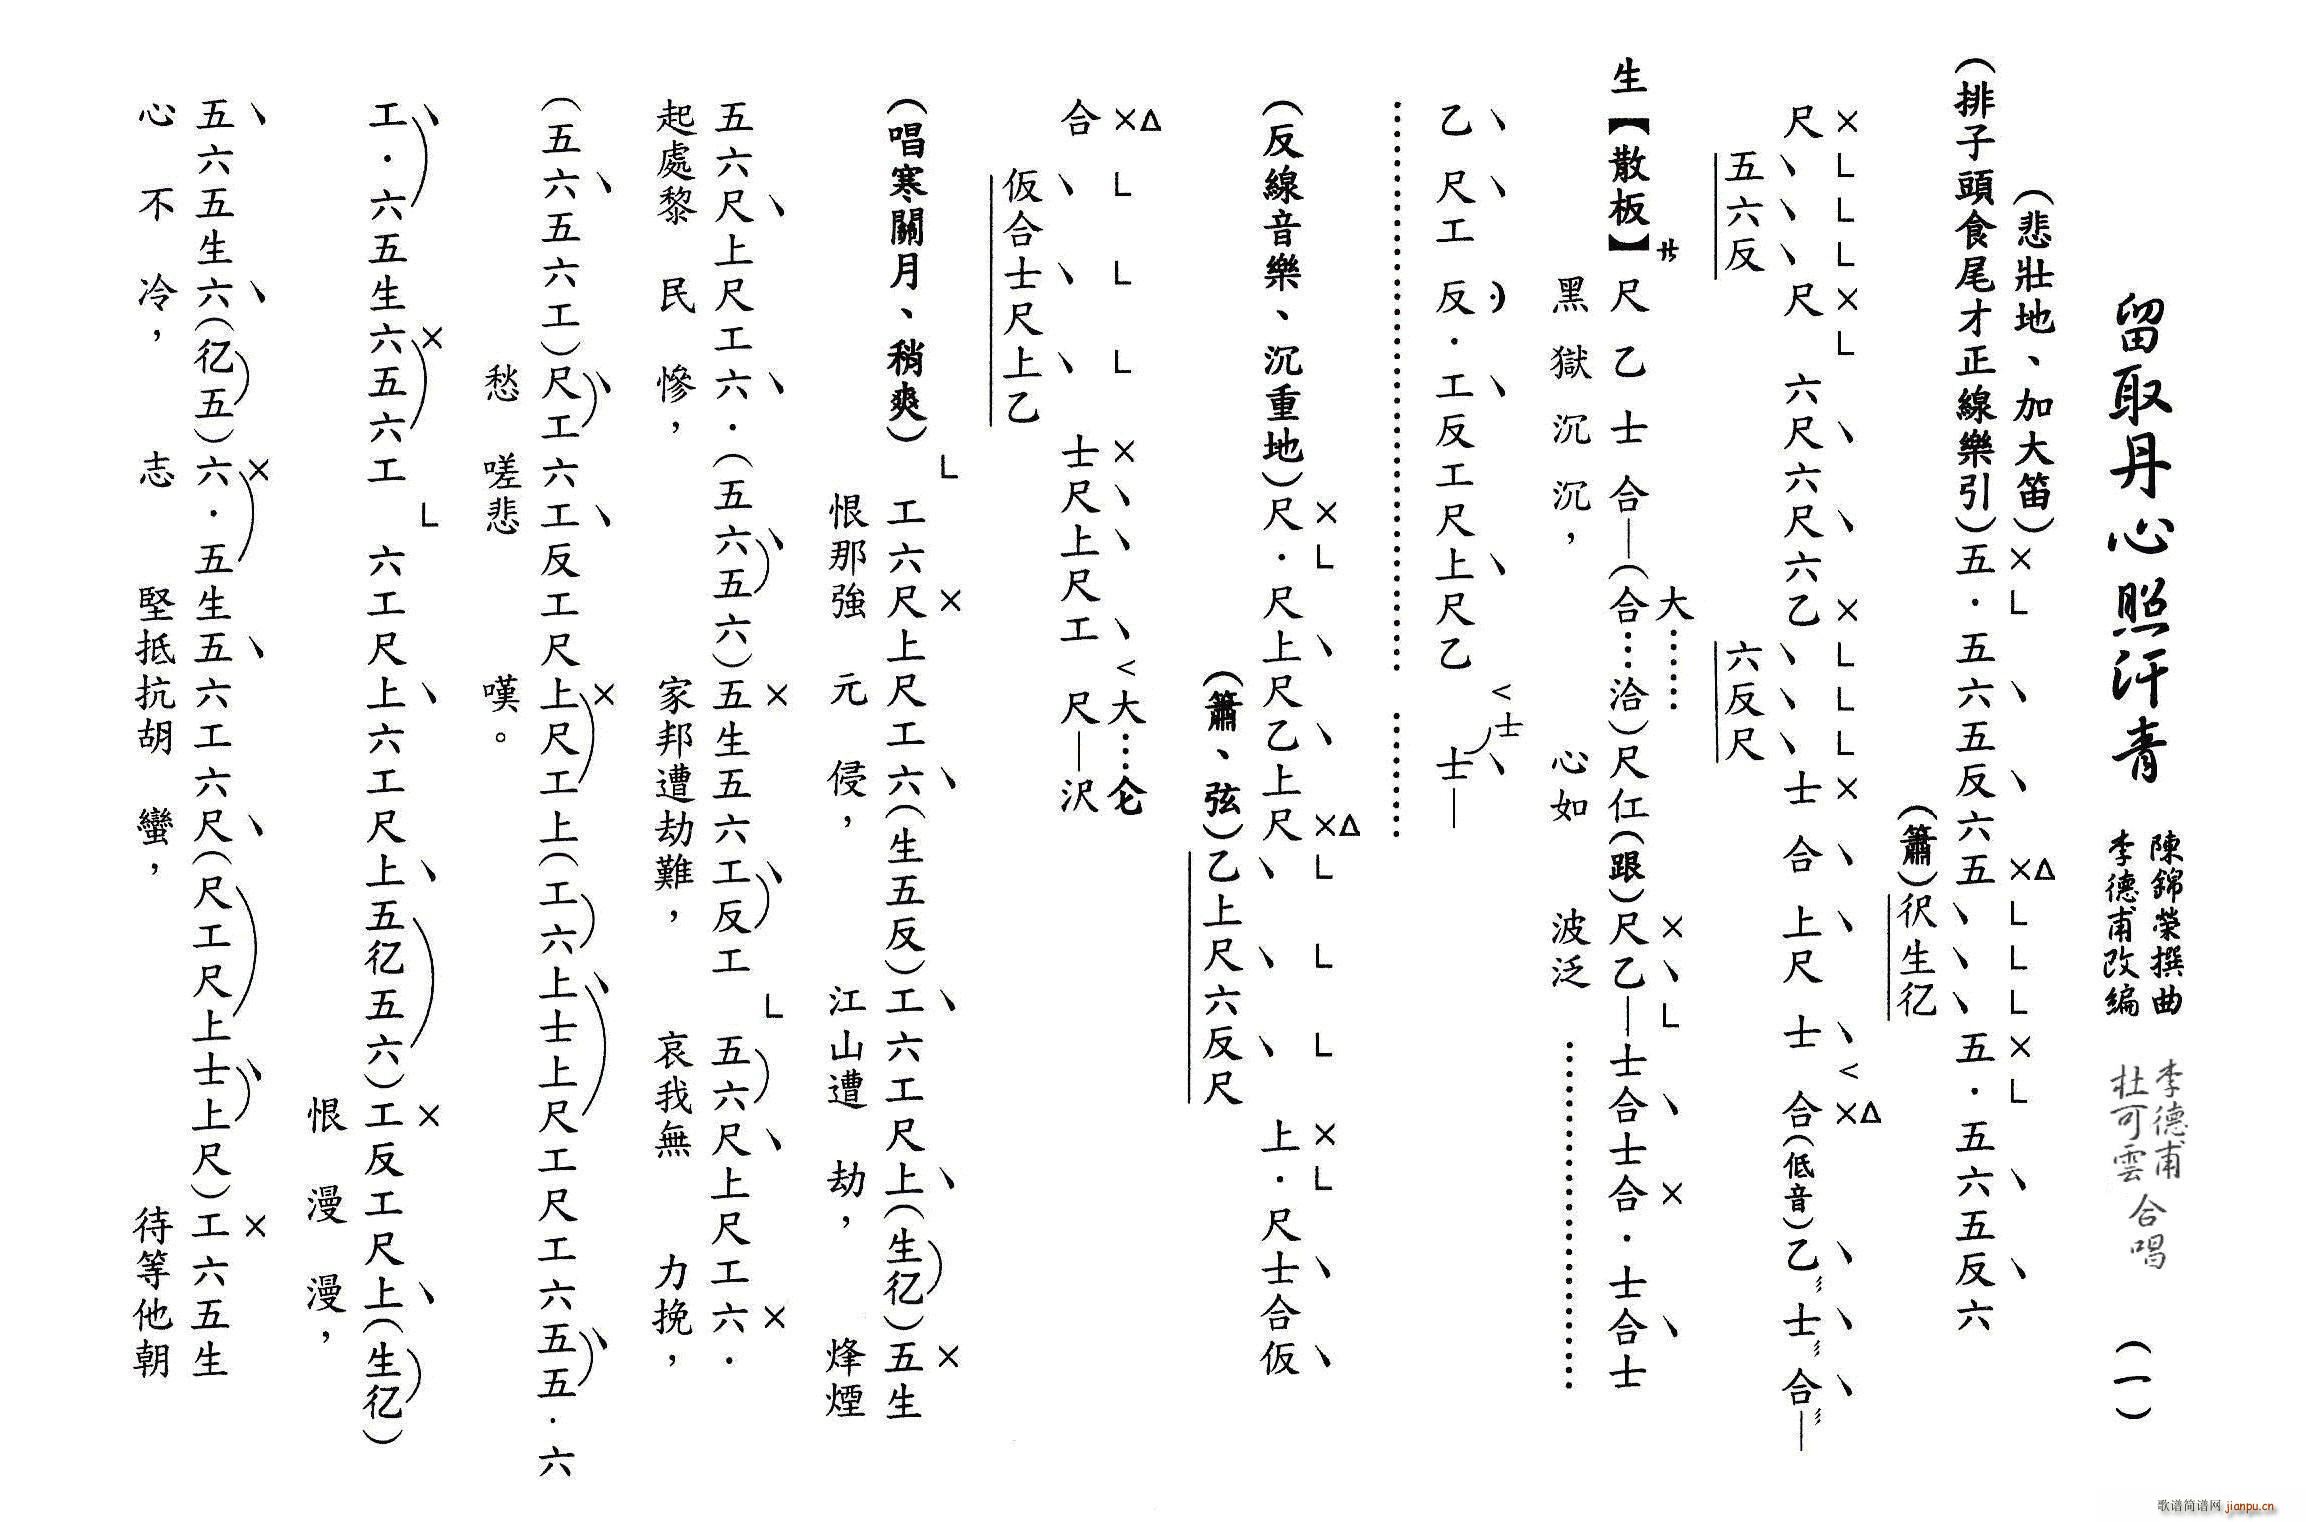 留取丹心照汗青
陳錦榮撰曲
李德甫改編
李德甫
杜可雲
合唱
(一)
(悲壯地、加大笛)
×L 、 、 ×△LLL×L 、 、
(排子頭食尾才正線樂引)五·五六五反六五 五·五六五反六
、、、
(簫)伬生亿
×LLL×L 、 、 ×LLL× 、 、 、 < ×△ 、 、 、
尺 尺 六尺六尺六乙 士 合 上尺 士 合(低音)乙士合—
、、、 、、、
五六反 六反尺
大…… × 、 L 、 × 、
生【散板】サ尺乙士合—(合……洽)尺仜(跟)尺乙—士合士合·士合士
黑獄沉沉, 心如 波泛
、 、 、 、 < 士 、
乙 尺工 反·工反工尺上尺乙 士—
×L 、 、 ×△ L L L ×L 、 、
(反線音樂、沉重地)尺·尺上尺乙上尺 上·尺士合仮
、 、 、
(簫、弦)乙上尺六反尺
×△ L L L × 、 、 、 < 大……仑
合 士尺上尺工 尺—沢
、 、 、
仮合士尺上乙
L × 、 、 、 ×
(唱寒關月、稍爽) 工六尺上尺工六(生五反)工六工尺上(生亿)五生
恨那強 元 侵, 江山遭 劫, 烽煙
、 、 、 × 、 L 、 ×
五六尺上尺工六·(五六五六)五生五六工反工 五六尺上尺工六·
起處黎 民 慘, 家邦遭劫難, 哀我無 力挽,
、 、 、 × 、 、
(五六五六工)尺工六工反工尺上尺工上(工六上士上尺工尺工六五五·六
愁 嗟悲 嘆。
、 × L 、 、 × 、
工·六五生六五六工 六工尺上六工尺上五亿五六)工反工尺上(生亿)
恨 漫 漫,
、 、 × 、 、 、 ×
五六五生六(亿五)六·五生五六工六尺(尺工尺上士上尺)工六五生
心 不 冷, 志 堅抵抗胡 蠻, 待等他朝
歌谱简谱网 jianpu.cn